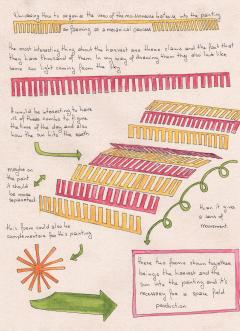 how to organise the view of the
into the painting
or farming as a mechanical process
the most interesting thing about the harvest are these claws and the fact that
they have thousand of them in my way of drawing them they also look like
some sun light coming from the sky
it would be interesting to have
all of these combs to give
the time of the day and also
how the sun hits the earth
maybe on
the paint
it should
be more
separated
then it give
a sens of
movement
this form could also be
complementaire for this painting
these two forms shown together
beings the harvest and the
sun into the painting and it's
necessary for a space field
production